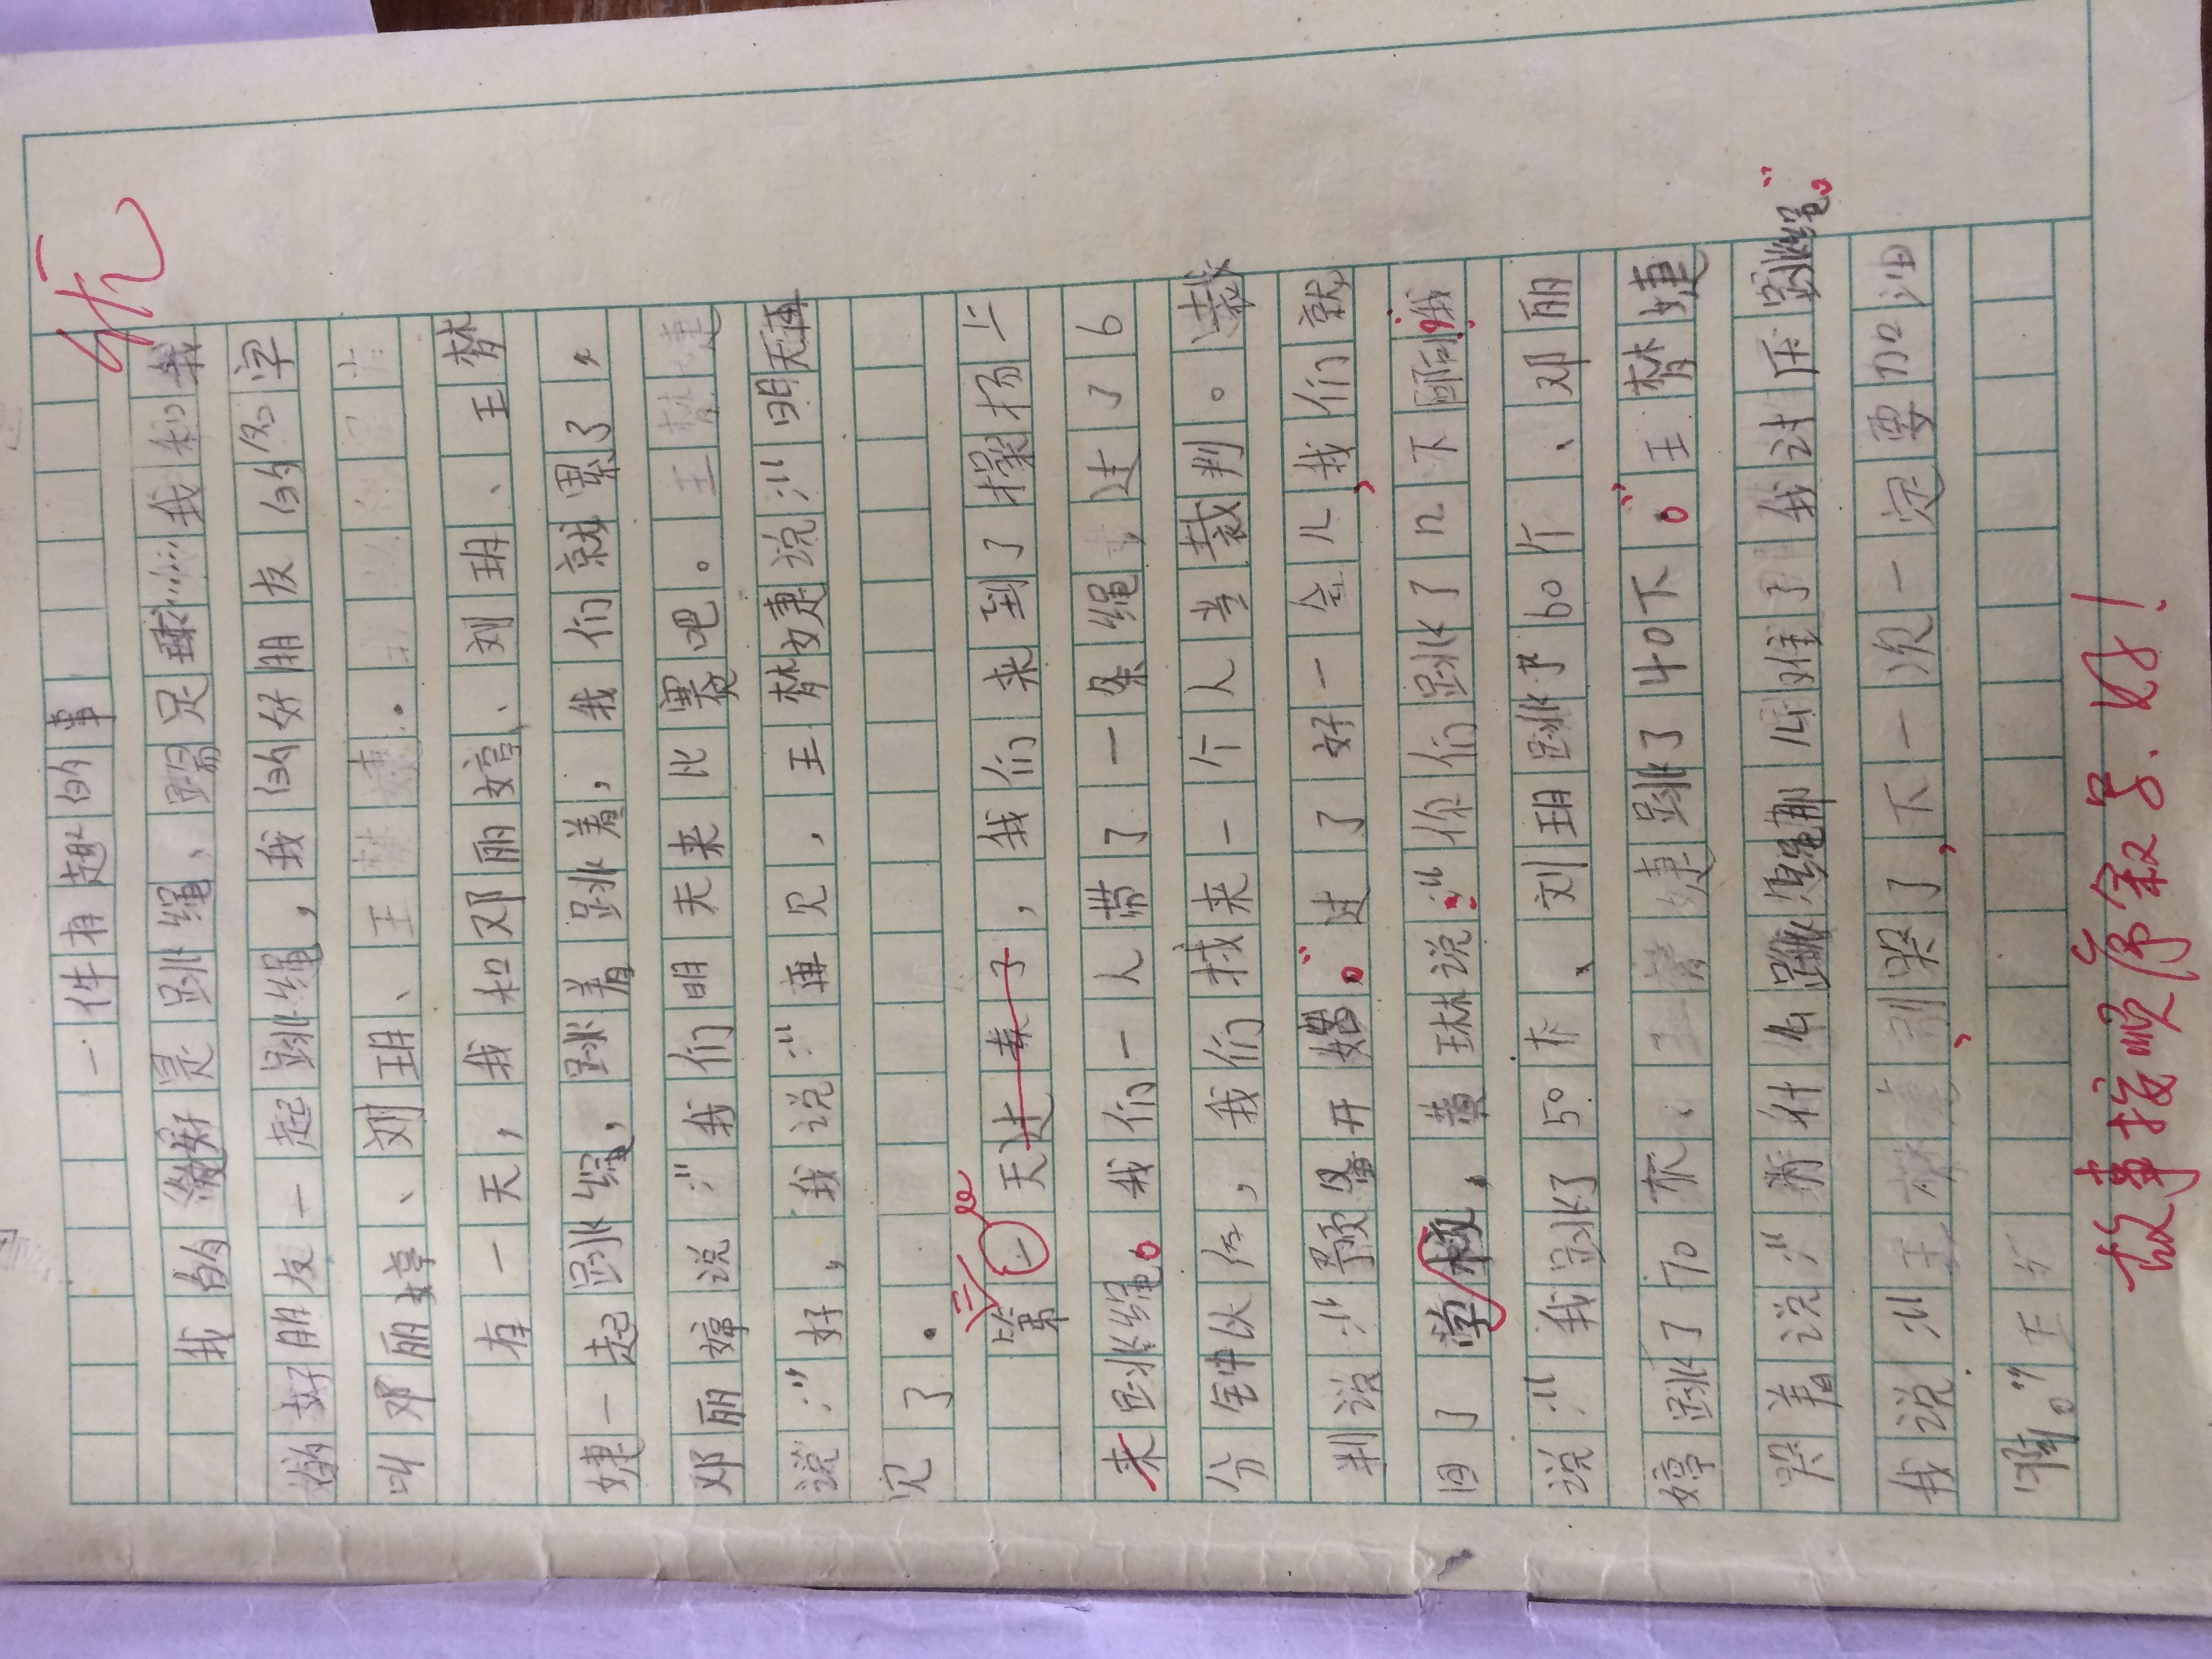 优
一件有趣的事
我的爱好是跳绳、踢足球……我和我
的好朋友一起跳绳，我的好朋友的名字
叫邓丽婷、刘玥、王梦婕.
有一天，我和邓丽婷、刘玥、王梦
婕一起跳绳，跳着跳着，我们就累了，
邓丽婷说："我们明天来比赛吧。王梦婕
说："好，我说："再见，王梦婕说："明天再
见了.
第二天过来了，我们来到了操场上
来跳绳。我们一人带了一条绳，过了6
分钟以后，我们找来一个人当裁判。裁
判说："预备开始。"过了好一会儿，我们就
回了学校，黄琳说："你们跳了几下啊？"我
说："我跳了50下、刘玥跳了60个、邓丽
婷跳了70下、王梦婕跳了40下。"王梦婕
哭着说："为什么跳绳那么难了我讨厌跳绳。"
我说："王梦婕，别哭了，下一次一定要加油
啊。"王
故事按顺序叙写.好!